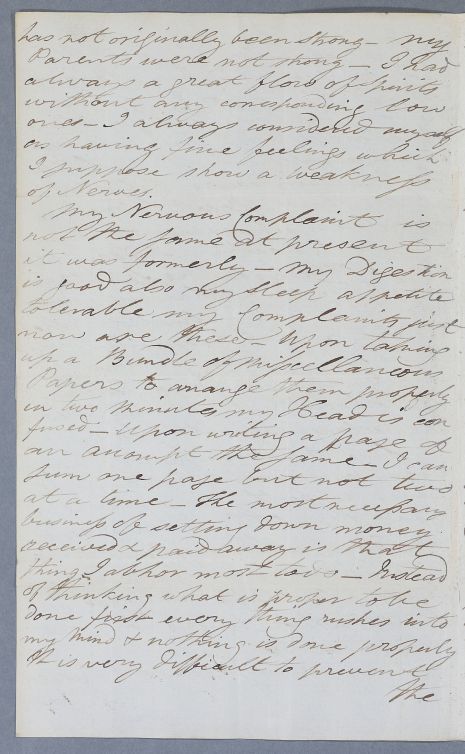 has not originally been strong – my
Parents were not strong – I had
always a great flow of spirits
without any corresponding low
ones – I always considered myself
as having fine feelings which
I suppose show a weakness
of Nerves.
My Nervous Complaint is
not the same at present
it was formerly – my Digestion
is good also my sleep appetite
tolerable my Complaints just
now are these – Upon taking
up a Bundle of Miscellaneous
Papers to arange them properly
in two minutes my Head is con
fused – Upon writing a page of
an accompt the same – I can
sum one page but not two
at a time – the most necessary
business of setting down money
received & paid away is that
thing I abhor most to do – Instead
of thinking what is proper to be
done first every thing rushes into
my mind & nothing is done properly
It is very difficult to prevent
the